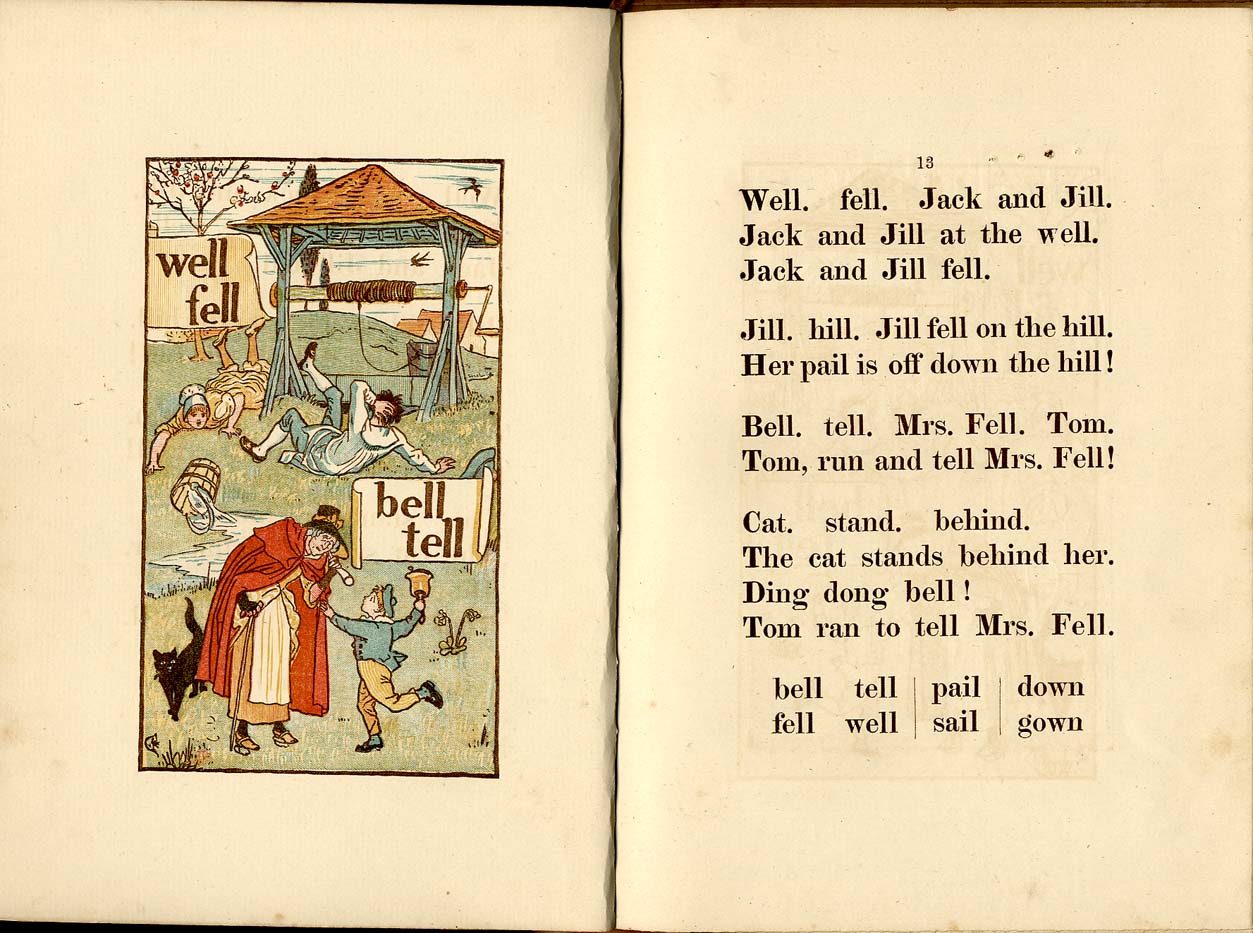 well
fell
bell
tell
13
Well. fell. Jack and Jill.
Jack and Jill at the well.
Jack and Jill fell.
Jill. hill. Jill fell on the hill.
Her pail is off down the hill!
Bell. tell. Mrs. Fell. Tom.
Tom, run and tell Mrs. Fell!
Cat. stand. behind.
The cat stands behind her.
Ding dong bell!
Tom ran to tell Mrs. Fell.
bell tell | pail | down
fell well | sail | gown